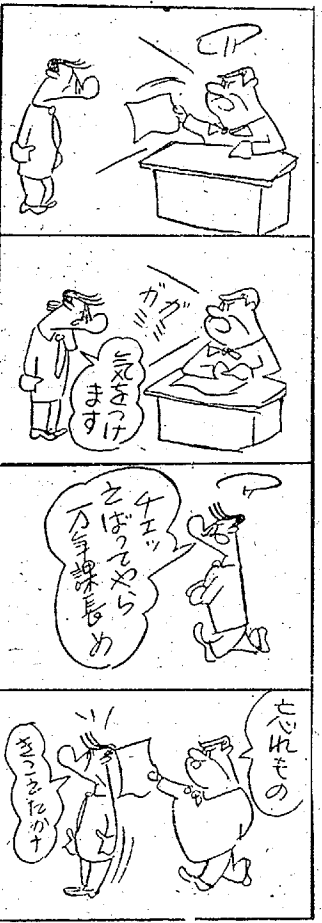 ガガ
気をつけ
ます
チエッ
えばってやら
万年課長め
忘れもの
きこえたかナ